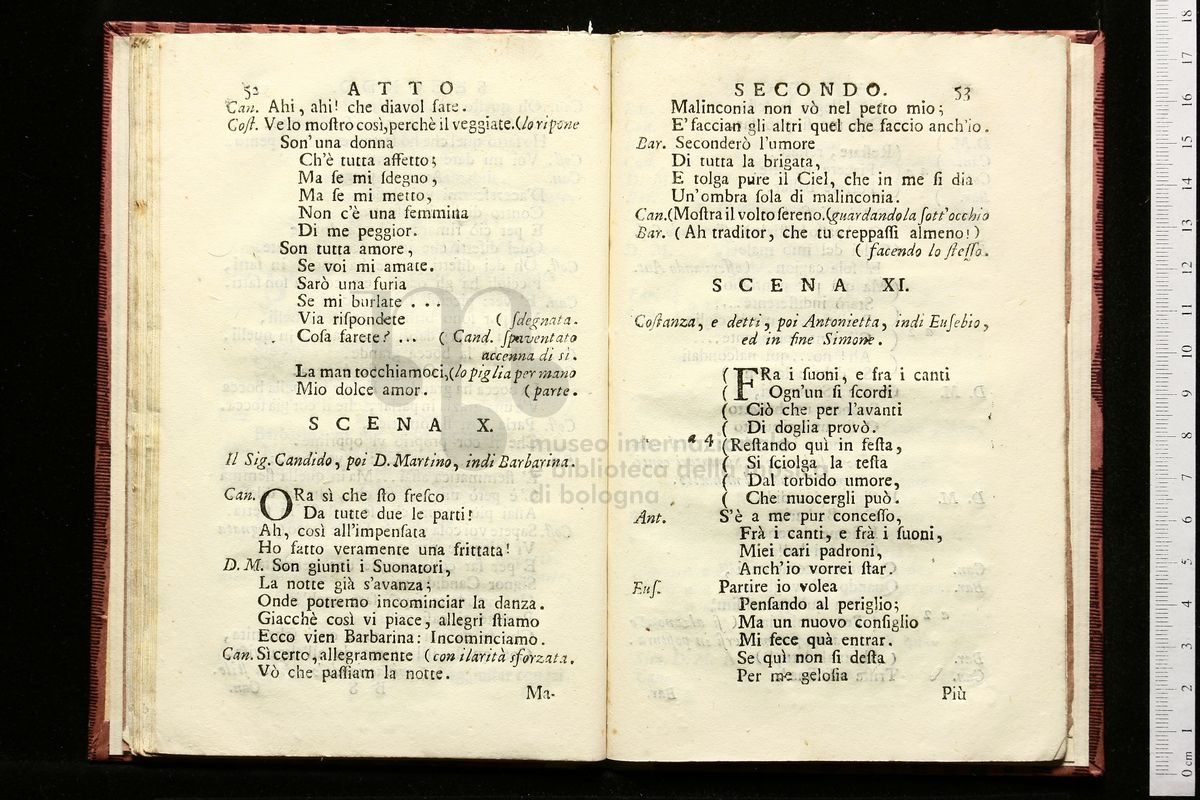 52 ATTO
Can. Ahi, ahi! che diavol fate.
Coſt. Ve lo moſtro così, perchè il veggiate. (lo ripone
Son'una donna
Ch'è tutta affetto;
Ma ſe mi ſdegno,
Ma ſe mi metto,
Non c'è una femmina
Di me peggior.
Son tutta amore,
Se voi mi amate.
Sarò una furia
Se mi burlate . . .
Via riſpondete ( ſdegnata.
Coſa farete? ... ( Cand. ſpaventato
accenna di sì.
La man tocchiamoci, (lo piglia per mano
Mio dolce amor. (parte.
SCENA X.
Il Sig. Candido, poi D. Martino, indi Barbarina.
Can. ORa sì che ſto freſco
Da tutte due le parti!
Ah, così all'impenſata
Ho fatto veramente una frittata!
D. M. Son giunti i Suonatori,
La notte già s'avanza;
Onde potremo incominciar la danza.
Giacchè così vi piace, allegri ſtiamo
Ecco vien Barbarina: Incominciamo.
Can. Sì certo, allegramente (con ilarità sforzata.
Vò che paſſiam la notte.
Ma-
SECONDO. 53
Malinconia non vò nel petto mio;
E' faccian gli altri quel che faccio anch'io.
Bar. Seconderò l'umore
Di tutta la brigata,
E tolga pure il Ciel, che in me ſi dia
Un'ombra ſola di malinconia.
Can. (Moſtra il volto ſereno. (guardandola ſott'occhio
Bar. (Ah traditor, che tu creppaſſi almeno!)
( facendo lo ſteſſo.
SCENA XI.
Coſtanza, e detti, poi Antonietta, indi Euſebio,
ed in fine Simone.
( FRa i ſuoni, e fra i canti
( Ogn'un ſi ſcordi
( Ciò che per l'avanti
( Di doglia provò.
a 4 (Reſtando quì in feſta,
( Si ſciolga la teſta
( Dal torbido umore,
( Che nuocergli può.
Ant. S'è a me pur conceſſo,
Frà i canti, e frà i ſuoni,
Miei cari padroni,
Anch'io vorrei ſtar.
Euſ. Partire io volea
Penſando al periglio;
Ma un nuovo conſiglio
Mi fece quà entrar.
Se quì non ſi deſta
Per me geloſia
Più
museo internazionale
e biblioteca della musica
di bologna
0 cm 1 2 3 4 5 6 7 8 9 10 11 12 13 14 15 16 17 18